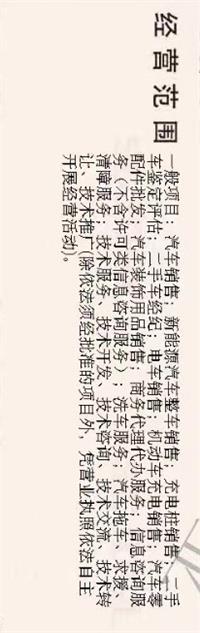 经营范围
一般项目：汽车销售；新能源汽车整车销售；充电桩销售；二手
车鉴定评估；二手车经纪；电车销售；机动车充电销售；汽车零
配件批发；汽车装饰用品销售；商务代理代办服务；信息咨询服
务（不含许可类信息咨询服务）；洗车服务；汽车拖车、求援、
清障服务；技术服务、技术开发、技术咨询、技术交流、技术转
让、技术推广(除依法须经批准的项目外，凭营业执照依法自主
开展经营活动)。